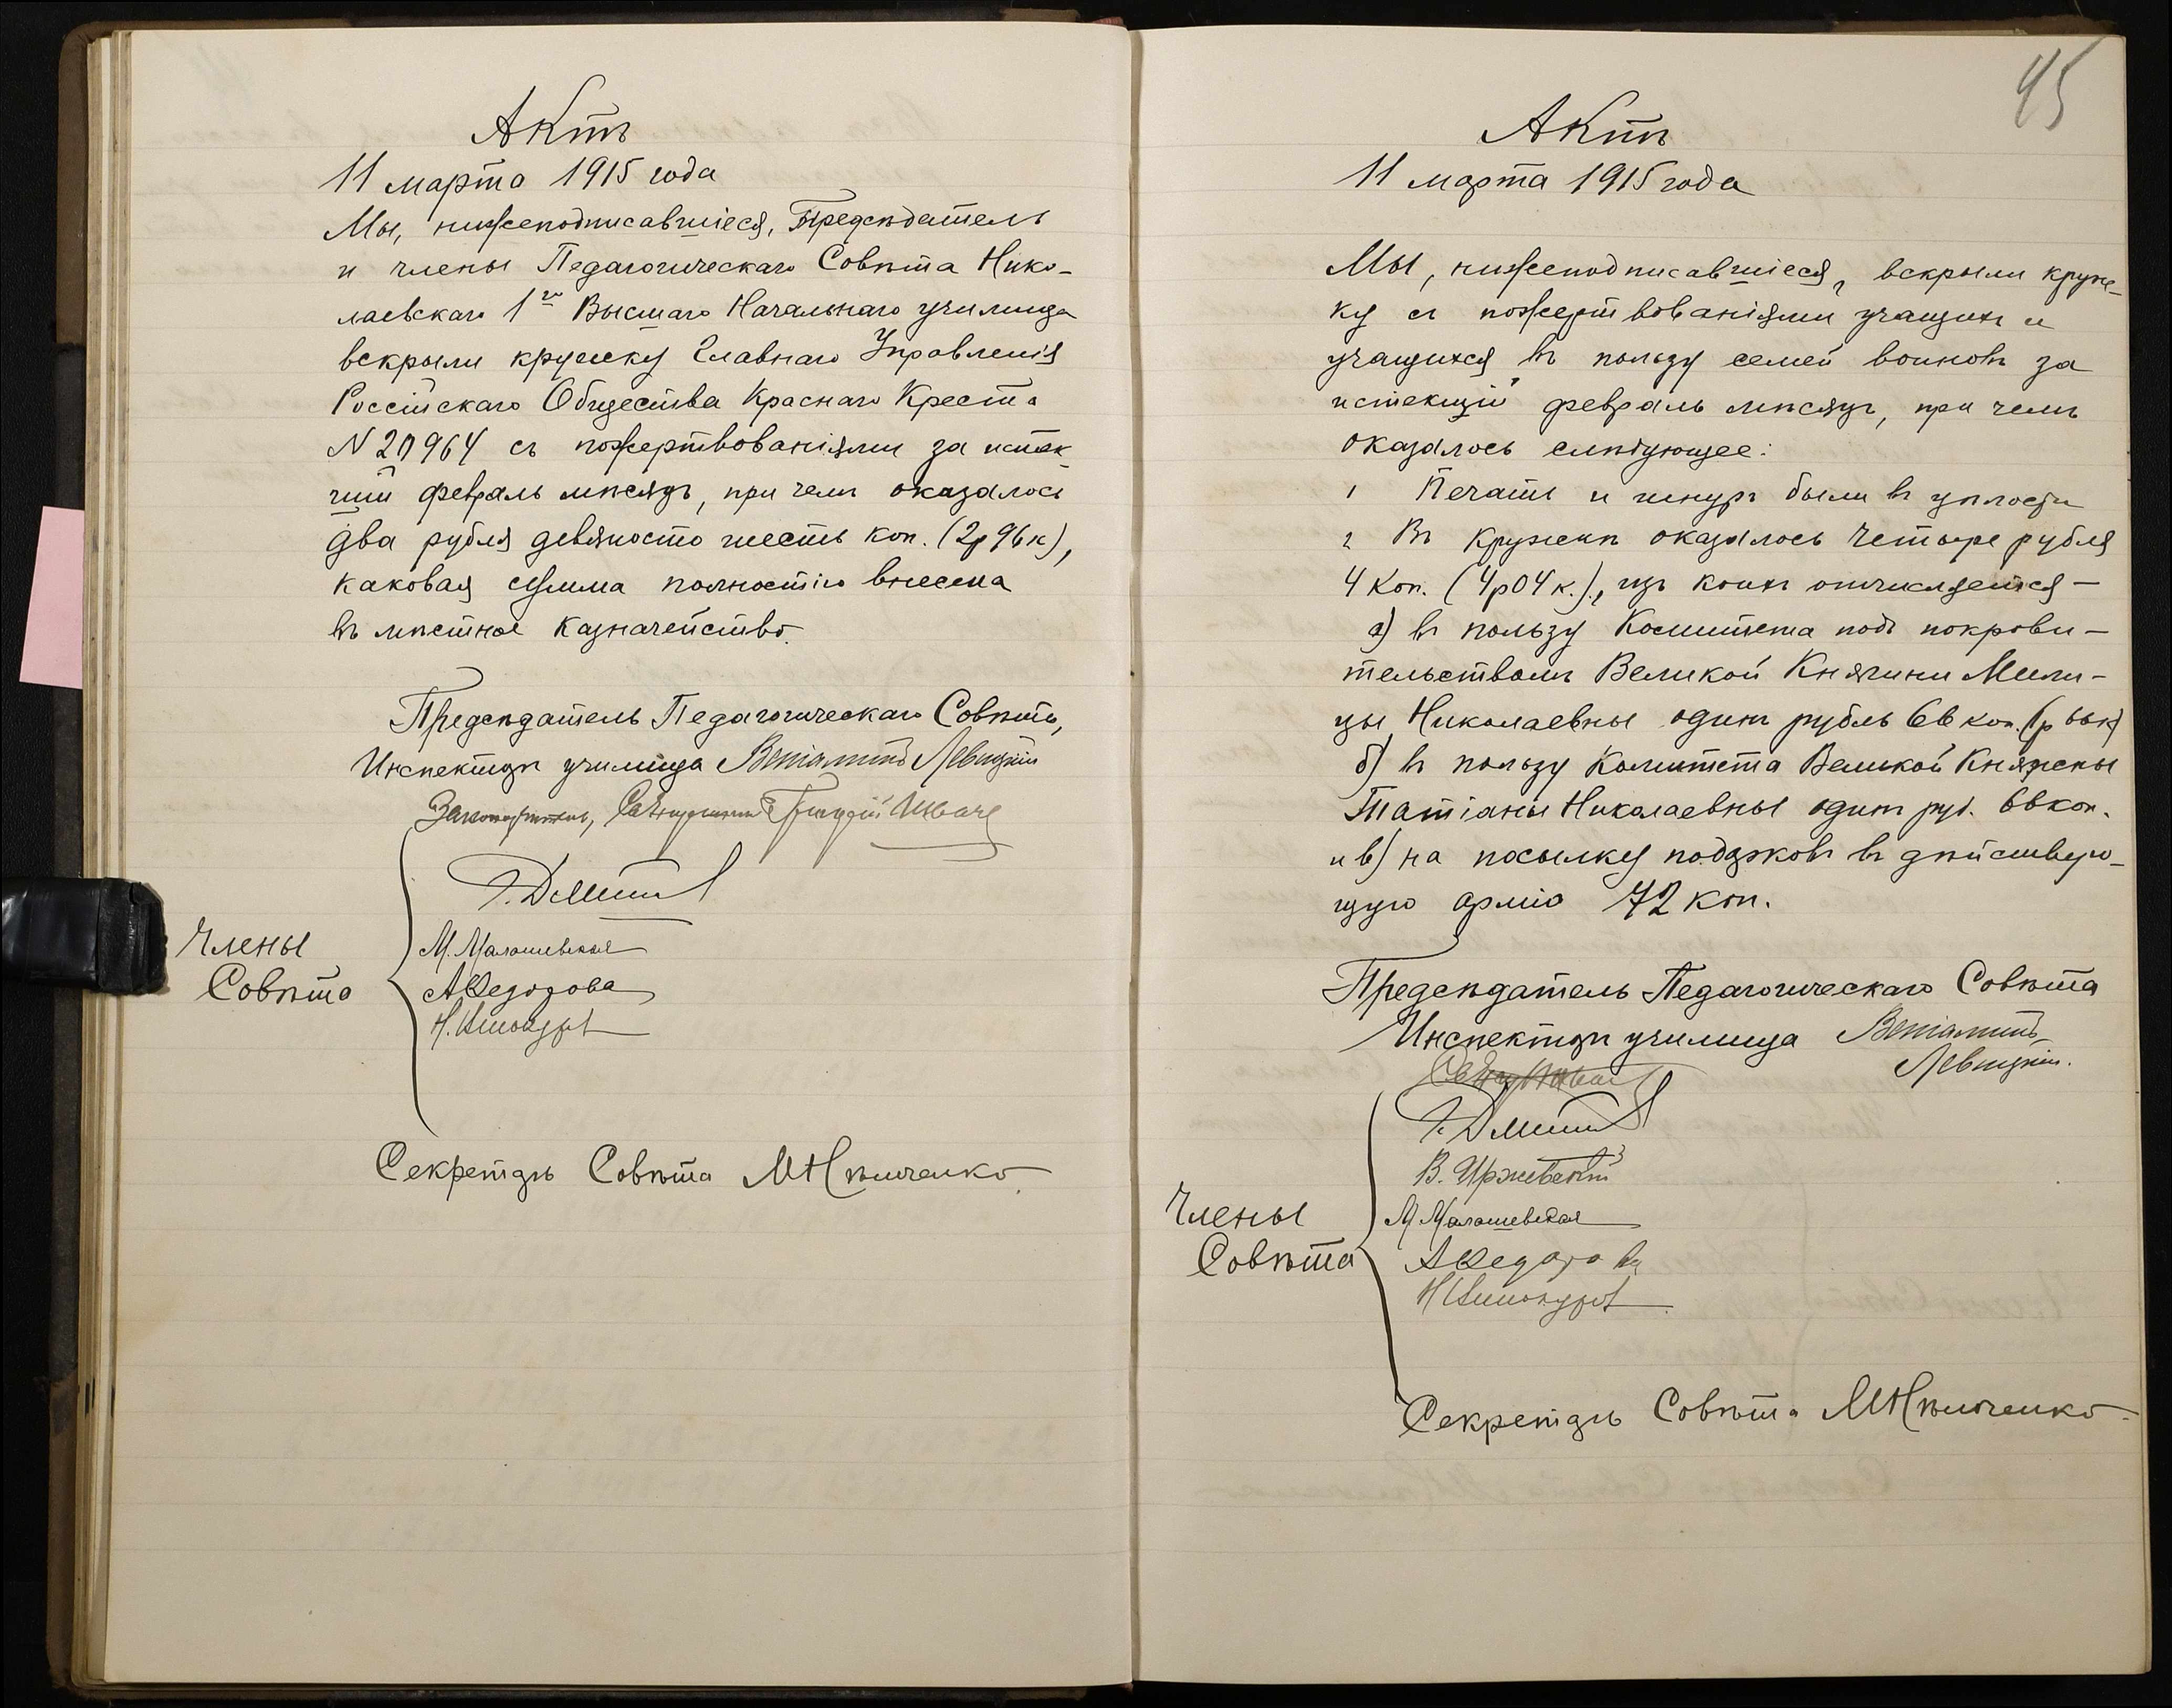 Актъ
11 марта 1915 года
Мы, нижеподписавшіеся, Предсѣдатель
и члены Педагогическаго Совѣта Нико-
лаевскаго 1го Высшаго Начальнаго училища
вскрыли кружку Главнаго Управленія
Россійскаго Общества Краснаго Креста
N 20964 съ пожертвованіями за истек-
шій февраль мѣсяцъ, при чемъ оказалось
два рубля девяносто шесть коп. (2р 96к),
каковая сумма полностію внесена
въ мѣстное казначейство.
Предсѣдатель Педагогическаго Совѣта,
Инспекторъ училища Веніаминъ Левицкій
Законоучитель, Священникъ
М. Малашевская
Члены
Совѣта
А Федорова
Секретарь Совѣта
45
Актъ
11 марта 1915 года
Мы, нижеподписавшіеся, вскрыли круж-
ку съ пожертвованіями учащихъ и
учащихся въ пользу семей воиновъ за
истекшій февраль мѣсяцъ, при чемъ
оказалось слѣдующее:
1 Печать и шнуръ были въ цѣлости
2 Въ кружкѣ оказалось четыре рубля
4 коп. (4р 04 к.), изъ коихъ отчисляется —
а) въ пользу Комитета подъ покрови-
тельствомъ Великой Княгини Мили-
цы Николаевны одинъ рубль 66 коп. (1р 66к)
б) въ пользу Комитета Великой Княжны
Татіаны Николаевны одинъ руб. 66 коп.
и в) на посылку подарковъ въ дѣйствую-
щую армію 72 коп.
Предсѣдатель Педагогическаго Совѣта
Инспекторъ училища Веніаминъ
Левицкій.
Члены
М Малашевская
Совѣта
А Федорова
Секретарь Совѣта